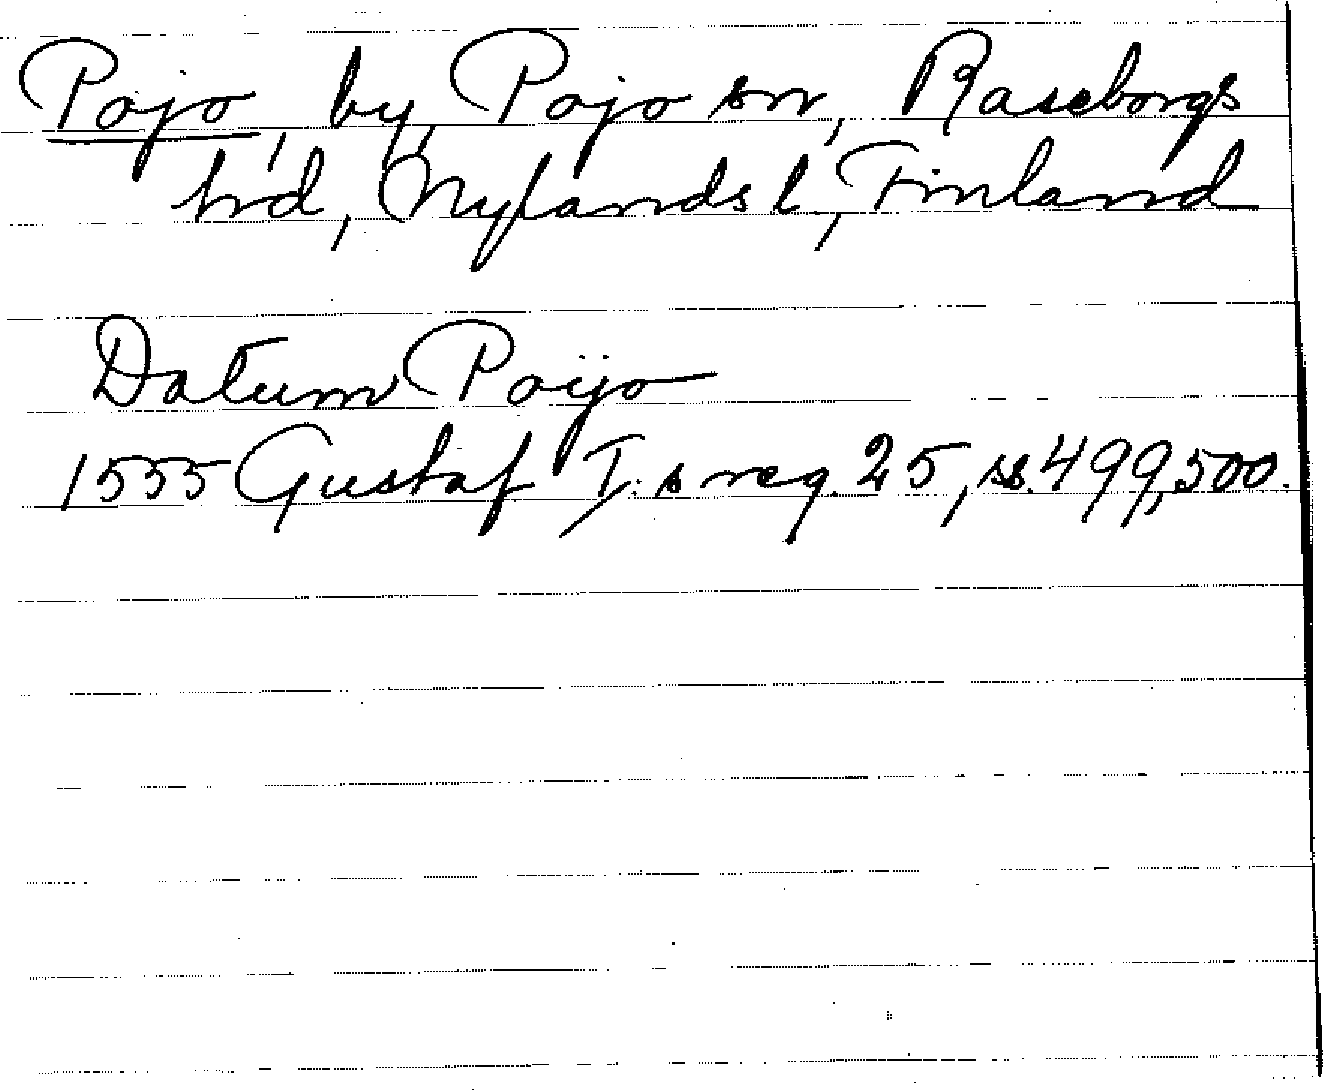 Pojo, by, Pojo sn, Raseborgs
hd, Nylands l, Finland
Datum Poijo
1555 Gustaf I:s reg. 25, ss. 499, 500.